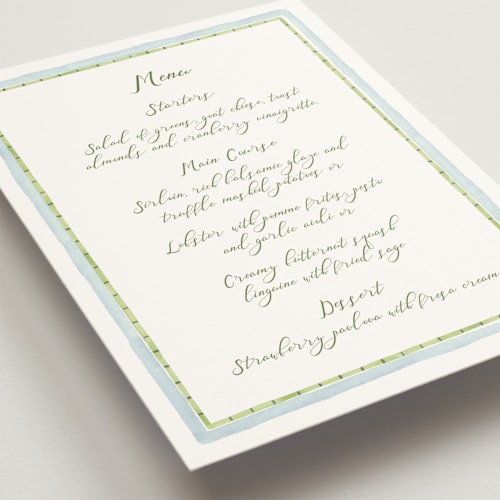 Menu
Starters
Salad of greens, goat chese, toast
almonds and cranberry vinaigrette.
Main Course
Sirloin, rich balsamic glaze and
truffle mashed potatoes or
Lobster with pomme frites, pesto
and garlic aioli or
Creamy butternut squash
linguine with fried sage
Dessert
Strawberry pavlova with fresa cream